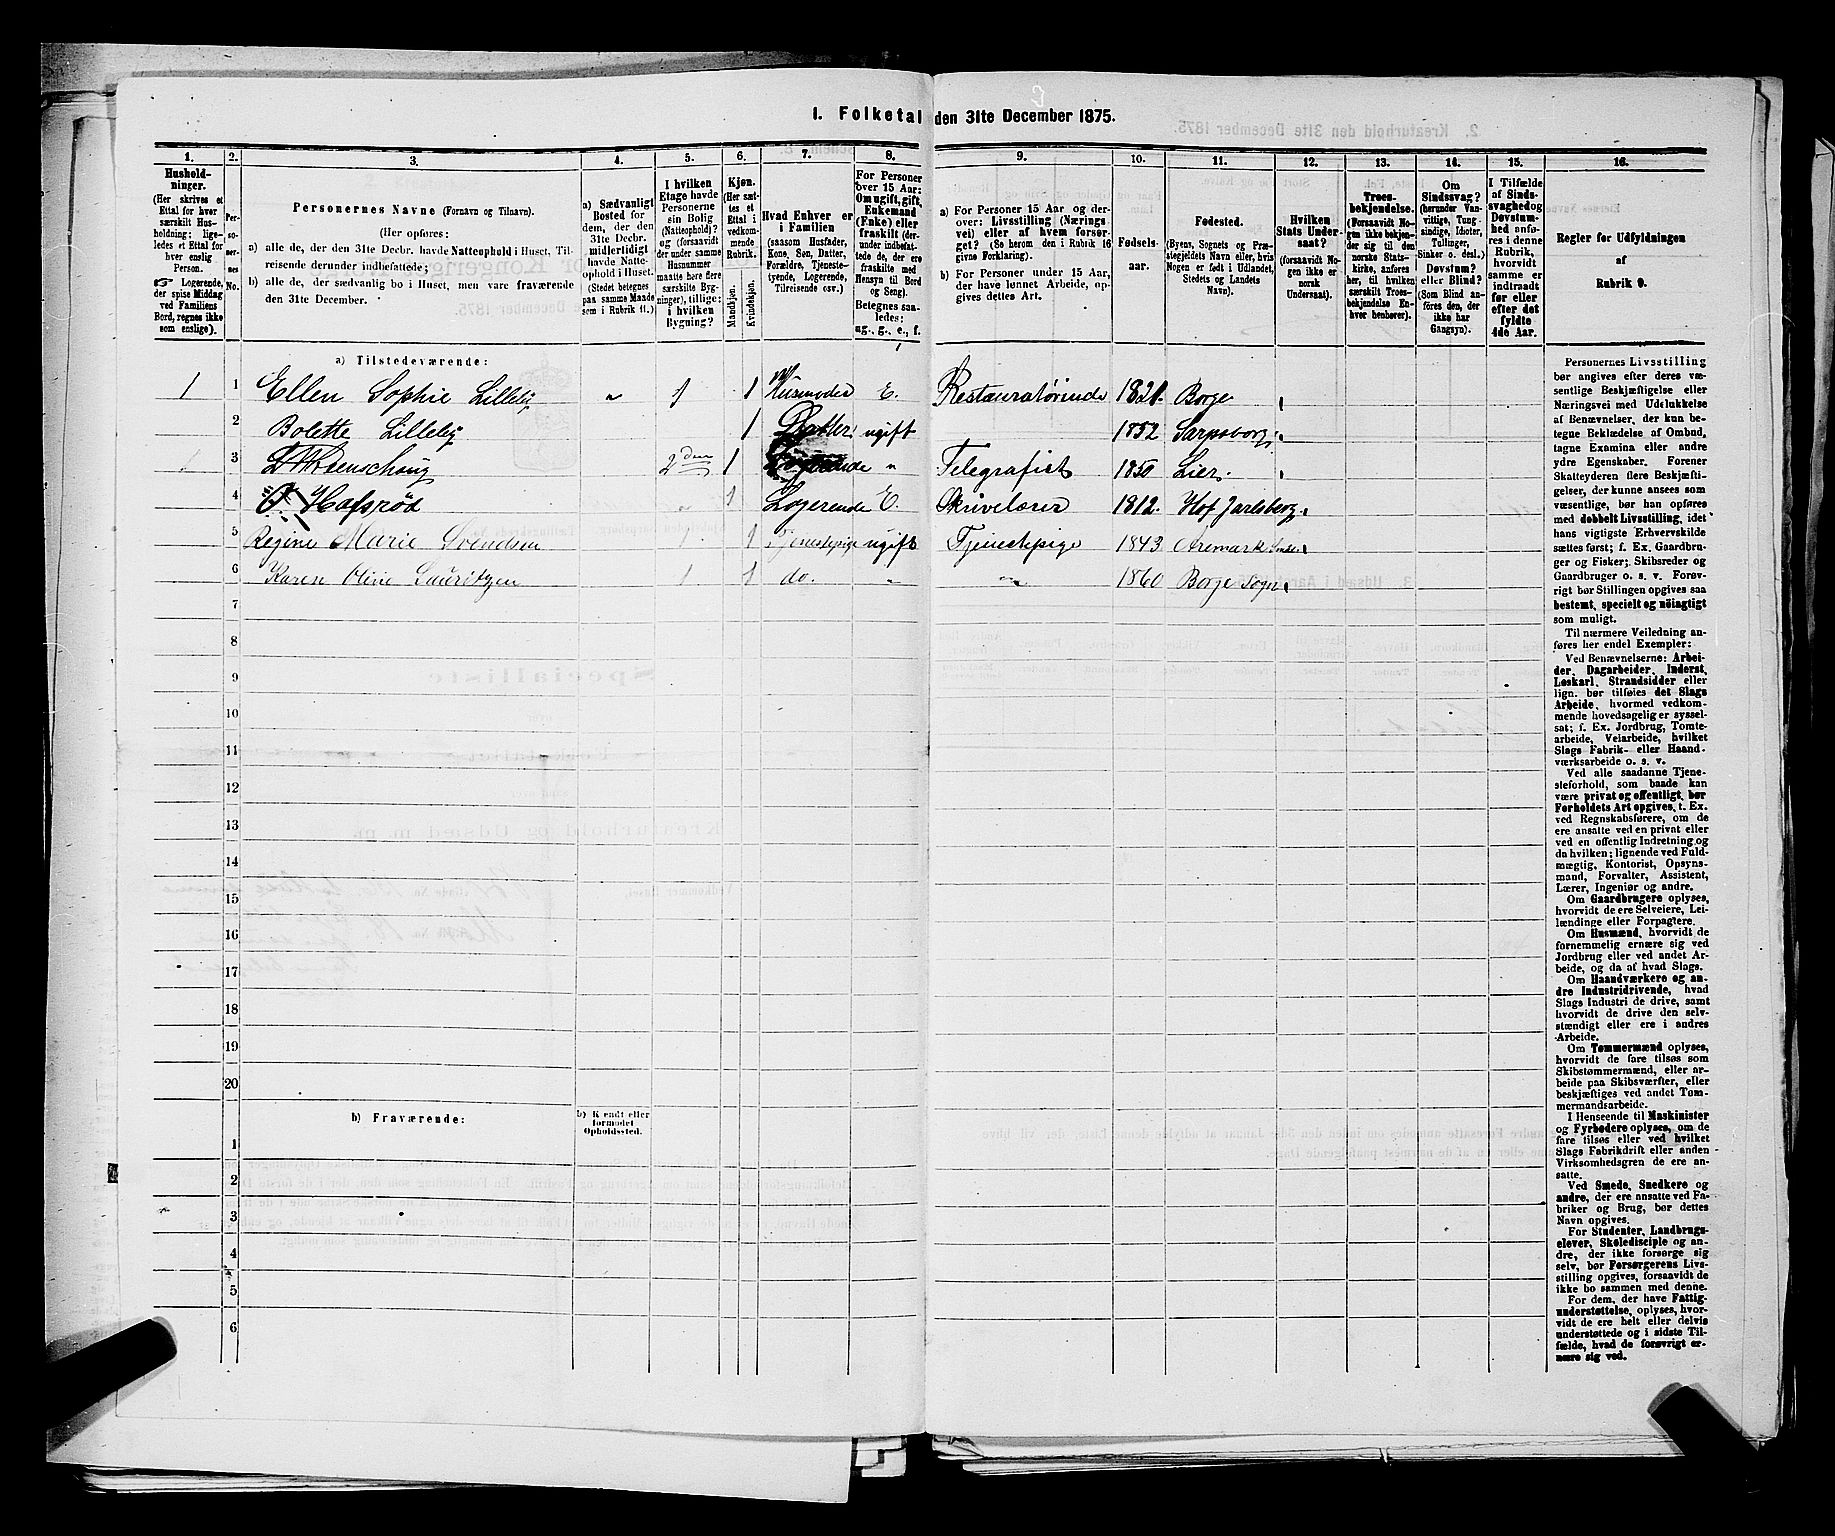 1. Folketal den 31te December 1875.
1.
Hushold-
ninger.
(Her skrives et
Ettal for hver
særskilt Hus-
holdning; lige-
ledes et Ettal for
hver enslig
Person.
☞ Logerende,
der spise Middag
ved Familiens
Bord, regnes ikke
som enslige).
2.
Per-
so-
ner-
nes
No.
3.
Personernes Navne (Fornavn og Tilnavn).
(Her opføres:
a) alle de, der den 31te Decbr. havde Natteophold i Huset, Til-
reisende derunder indbefattede;
b) alle de, der sædvanlig bo i Huset, men vare fraværende
den 31te December.
4.
a) Sædvanligt
Bosted for
dem, der den
31te Decbr.
midlertidigt
havde Natte-
ophold i Huset.
(Stedet betegnes
paa samme Maade
som i Rubrik 11.)
5.
I hvilken
Etage havde
Personerne
sin Bolig
(Natteophold)?
og (forsaavidt
der under samme
Husnummer
maatte høre flere
særskilte Byg-
ninger), tillige:
i hvilken
Bygning?
6.
Kjøn.
(Her sæt-
tes et
Ettal i
vedkom-
mende
Rubrik.
Mandkjøn.
Kvindekjøn.
7.
Hvad Enhver er
i Familien
(saasom Husfader,
Kone, Søn, Datter,
Forældre, Tjeneste-
tyende, Logerende,
Tilreisende osv.)
8.
For Personer
over 15 Aar:
Om ugift, gift,
Enkemand
(Enke) eller
fraskilt (der-
under indbefat-
tede de, der ere
fraskilte med
Hensyn til Bord
og Seng).
Betegnes saa-
ledes:
ug., g., e., f.
9.
a) For Personer 15 Aar og der-
over: Livsstilling (Nærings-
vei) eller af hvem forsør-
get? (Se herom den i Rubrik 16
givne Forklaring).
b) For Personer under 15 Aar,
der have lønnet Arbeide, op-
gives dettes Art.
10.
Fødsels-
aar.
11.
Fødested.
(Byens, Sognets og Præ-
stegjeldets Navn eller, hvis
Nogen er født i Udlandet,
Stedets og Landets
Navn).
12.
Hvilken
Stats Under-
saat?
(forsaavidt No-
gen ikke er
norsk
Undersaat).
13.
Troes-
bekjendelse.
(Forsaavidt No-
gen ikke bekjen-
der sig til den
norske Stats-
kirke, anføres
her, til hvilken
særskilt Troes-
bekjendelse En-
hver henhører).
14.
Om
Sindssvag?
(herunder Van-
vittige, Tung-
sindige, Idioter,
Tullinger,
Sinker o. desl.)
Døvstum?
eller Blind?
(Som Blind an-
føres den, der
ikke har
Gangsyn).
15.
I Tilfælde
af Sinds-
svaghed og
Døvstum-
hed anfø-
res i denne
Rubrik,
hvorvidt
samme er
indtraadt
før eller
efter det
fyldte
4de Aar.
16.
Regler for Udfyldningen
af
Rubrik 9.
a) Tilstedeværende:
1 1 Ellen Sophie Lilleby " 1 1 Husmoder E. Restauratørinde 1821 Borge
2 Bolette Lilleby 1 Datter ugift 1852 Sarpsborg
3 2den 1 Logerende " Telegrafist 1850 Lier
4 Hafsrød " 1 Logerende E. Skrivelærer 1812. Hof Jarlsberg
5 Regine Marie Svendsen 1 1 Tjenestepige ugift Tjenestepige 1843 Aremark
6 Karen Oline Lauritzen 1 1 do. " " 1860 Borge Sogn
7
8
9
10
11
12
13
14
15
16
17
18
19
20
b) Fraværende:
b) Kjendt eller
formodet
Opholdssted.
1
2
3
4
5
6
Personernes Livsstilling
bør angives efter deres væ-
sentlige Beskjæftigelse eller
Næringsvei med Udelukkelse
af Benævnelser, der kun be-
tegne Beklædelse af Ombud,
tagne Examina eller andre
ydre Egenskaber. Forener
Skatteyderen flere Beskjæfti-
gelser, der kunne ansees som
væsentlige, bør han opføres
med dobbelt Livsstilling, idet
hans vigtigste Erhvervskilde
sættes først; f. Ex. Gaardbru-
ger og Fisker; Skibsreder og
Gaardbruger o. s. v. Forøv-
rigt bør Stillingen opgives saa
bestemt, specielt og nöiagtigt
som muligt.
Til nærmere Veiledning an-
føres her endel Exempler:
Ved Benævnelserne: Arbei-
der, Dagarbeider, Inderst,
Løskarl, Strandsidder eller
lign. bør tilføies det Slags
Arbeide, hvormed vedkom-
mende hovedsagelig er syssel-
sat; f. Ex. Jordbrug, Tomte-
arbeide, Veiarbeide, hvilket
Slags Fabrik- eller Haand-
værksarbeide o. s. v.
Ved alle saadanne Tjene-
steforhold, som baade kan
være privat og offentligt, bør
Forholdets Art opgives, t. Ex.
ved Regnskabsførere, om de
ere ansatte ved en privat eller
ved en offentlig Indretning og
da hvilken; lignende ved Fuld-
mægtig, Kontorist, Opsyns-
mand, Forvalter, Assistent,
Lærer, Ingeniør og andre.
Om Gaardbrugere oplyses,
hvorvidt de ere Selveiere, Lei-
lændinge eller Forpagtere.
Om Husmænd, hvorvidt de
fornemmelig ernære sig ved
Jordbrug eller ved andet Ar-
beide, og da af hvad Slags.
Om Haandværkere og an-
dre Industridrivende, hvad
Slags Industri de drive, samt
hvorvidt de drive den selv-
stændigt eller ere i andres
Arbeide.
Om Tømmermænd oplyses,
hvorvidt de fare tilsøs som
Skibstømmermænd, eller ar-
beide paa Skibsværfter, eller
beskjæftiges ved andet Tøm-
mermandsarbeide.
I Henseende til Maskinister
og Fyrbødere oplyses, om de
fare tilsøs eller ved hvilket
Slags Fabrikdrift eller anden
Virksomhedsgren de ere an-
satte.
Ved Smede, Snedkere og
andre, der ere ansatte ved Fa-
briker og Brug, bør dettes
Navn opgives.
For Studenter, Landbrugs-
elever, Skoledisciple og an-
dre, der ikke forsørge sig
selv, bør Forsørgerens Livs-
stilling opgives, forsaavidt de
ikke bo sammen med denne.
For dem, der have Fattig-
understøttelse, oplyses, hvor-
vidt de ere helt eller delvis
understøttede og i sidste Til-
fælde, hvad de forøvrigt er-
nære sig ved.